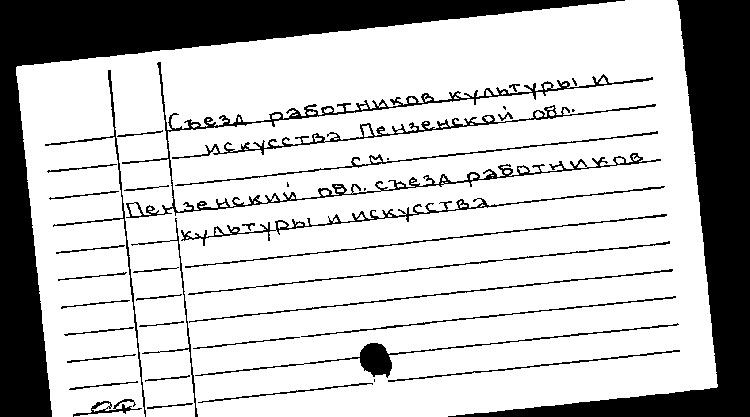 Съезд работников культуры и
искусства Пензенской обл.
см.
Пензенский обл. съезд работников
культуры и искусства